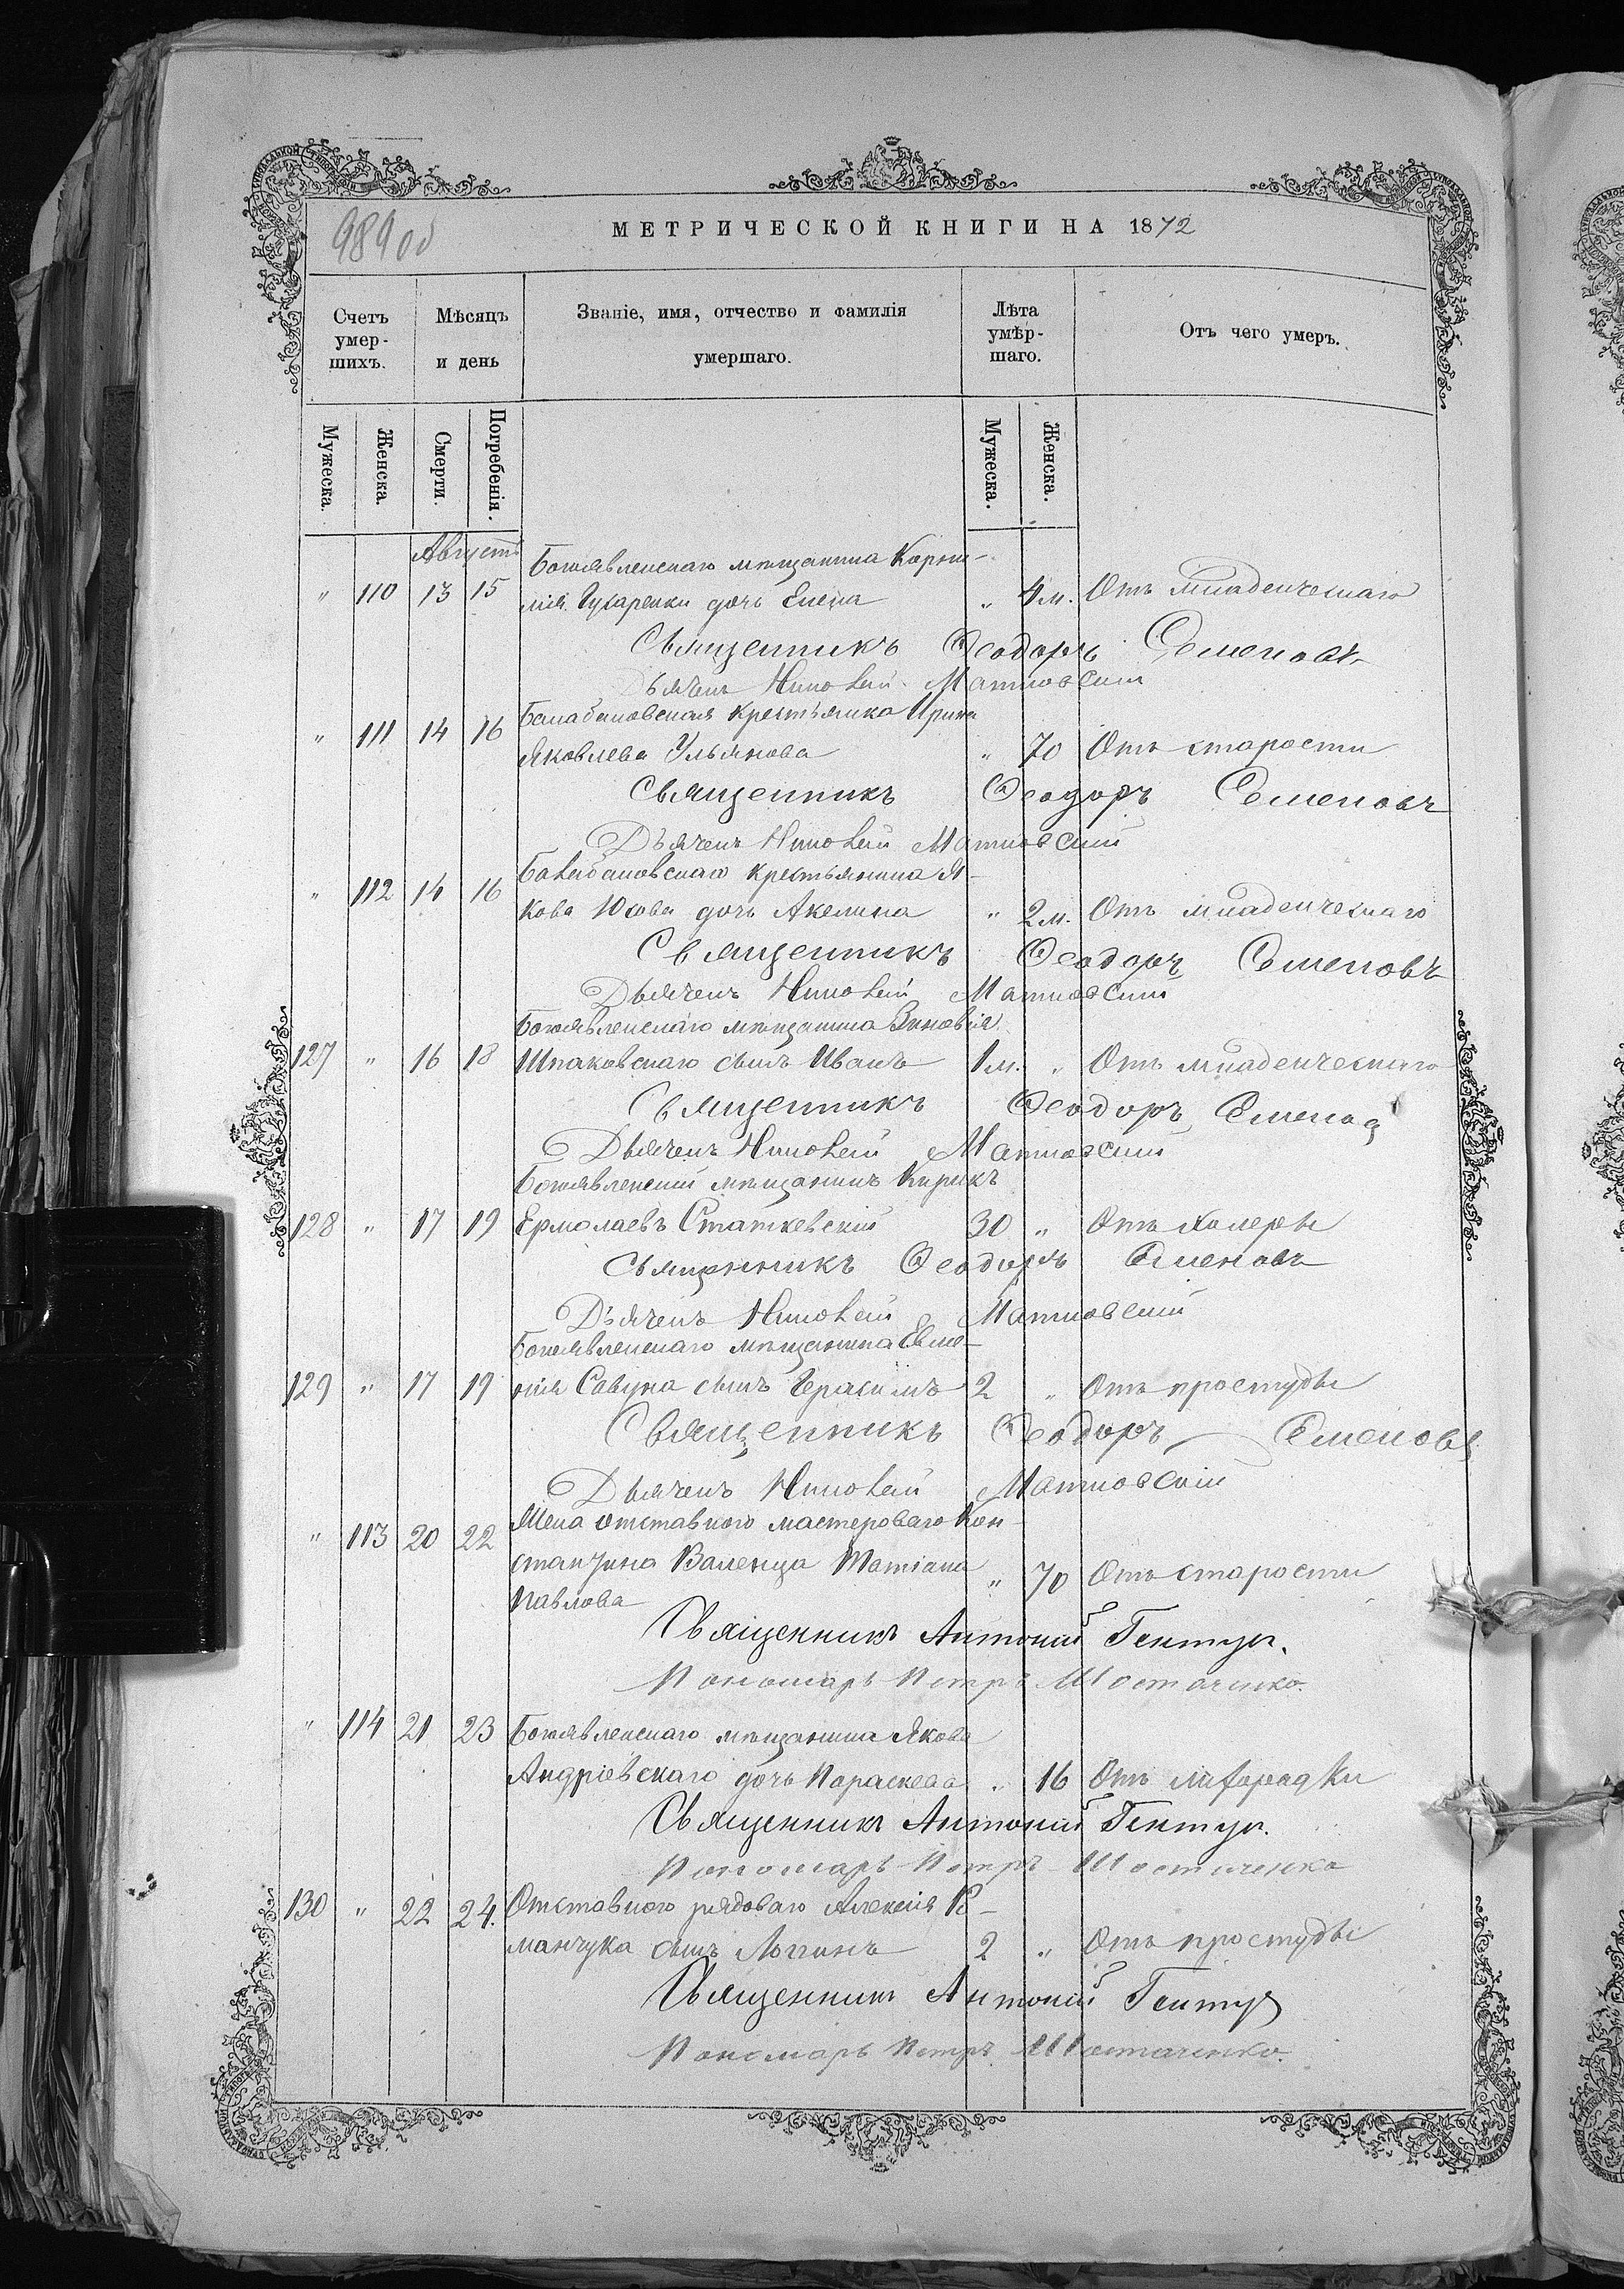 989 об
МЕТРИЧЕСКОЙ КНИГИ НА 1872
Счетъ умер- шихъ.
Мѣсяцъ и день
Званіе, имя, отчество и фамилія умершаго.
Лѣта умѣр- шаго.
Отъ чего умеръ.
Мужеска.
Женска.
Смерти.
Погребенія.
Мужеска.
Женска.
Августъ
Богоявленскаго мѣщанина Корни-
" 110 13 15 лія Гухаренки дочь Елена " 4 м. Отъ младенческаго
Священникъ Ѳеодоръ Семеновъ
Дьячекъ
Балабановская крестьянка Ирина
" 111 14 16 Яковлева Ульянова " 70 Отъ старости
Священникъ Ѳеодоръ Семеновъ
Дьячекъ
Балабановскаго крестьянина Я-
" 112 14 16 кова Юсова дочь Акелина " 2 м. Отъ младенческаго
Священникъ Ѳеодоръ Семеновъ
Дьячекъ
Богоявленскаго мѣщанина Зиновія
127 " 16 18 Шпаковскаго сынъ Иванъ 1 м. " Отъ младенческаго
Священникъ Ѳеодоръ Семеновъ
Дьячекъ
Богоявленскій мѣщанинъ Кирикъ
128 " 17 19 Ермолаевъ Статкевскій 30 " Отъ холеры
Священникъ Ѳеодоръ Семеновъ
Дьячекъ
Богоявленскаго мѣщанина Евме-
129 " 17 19 нія Савуна сынъ Герасимъ 2 " Отъ простуды
Священникъ Ѳеодоръ Семеновъ
Дьячекъ
Жена отставного мастероваго Кон-
" 113 20 22 стантина Валенца Татіана " 70 Отъ старости
Павлова
Священникъ Антоній Гентуръ.
Пономарь Петръ Шостаченко.
" 114 21 23 Богоявленскаго мѣщанина Якова
Андріевскаго дочь Параскева " 16 Отъ лихорадки
Священникъ Антоній Гентуръ.
Пономарь Петръ Шостаченко
130 " 22 24. Отставного рядоваго Алексія Р-
манчука сынъ Логинъ 2 " Отъ простуды
Священникъ Антоній Гентуръ
Пономарь Петръ Шостаченко.